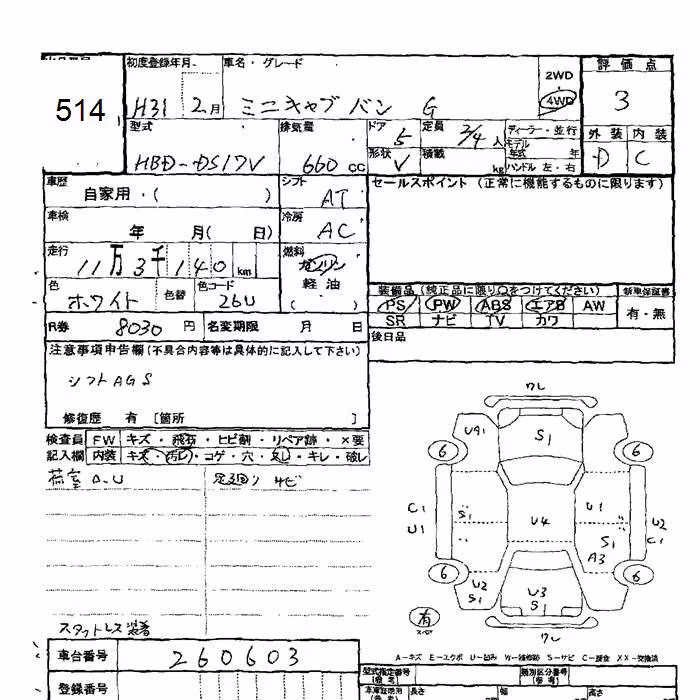 初度登録年月
車名・グレード
2WD
4WD
評価点
514
H31 2月
ミニキャブ バン G
3
型式
排気量
ドア
5
定員
2/4人
ディーラー・並行
外装
内装
HBD-DS17V
660cc
形状
V
積載
kg
モデル年式 年
ハンドル 左・右
D
C
車歴
自家用・( )
シフト
AT
セールスポイント (正常に機能するものに限ります)
車検
年 月( 日)
冷房
AC
走行
11万3千140km
燃料
ガソリン
軽油
( )
色
ホワイト
色替
色コード
26U
装備品 (純正品に限り○をつけてください)
新車保証書
PS PW ABS エアB AW
有・無
SR ナビ TV カワ
R券 8030円
名変期限 月 日
後日品
注意事項申告欄(不具合内容等は具体的に記入して下さい)
シフトAGS
修復歴 有 [箇所 ]
検査員 FW キズ・飛石・ヒビ割・リペア跡・×要
記入欄 内装 キズ・汚レ・コゲ・穴・欠レ・キレ・破レ
荷室 A.U
足回り サビ
ワレ
UA1
S1
6
6
C1
U1
S1
U4
U1
S1
A3
U2
C1
6
6
U2
S1
U3
S1
有
スペア
ワレ
スタットレス 装着
A-キズ E-エクボ U-凹み W-補修跡 S-サビ C-腐食 XX-交換済
車台番号
260603
型式指定番号
(備考)
類別区分番号
(備考)
登録番号
長さ
幅
高さ